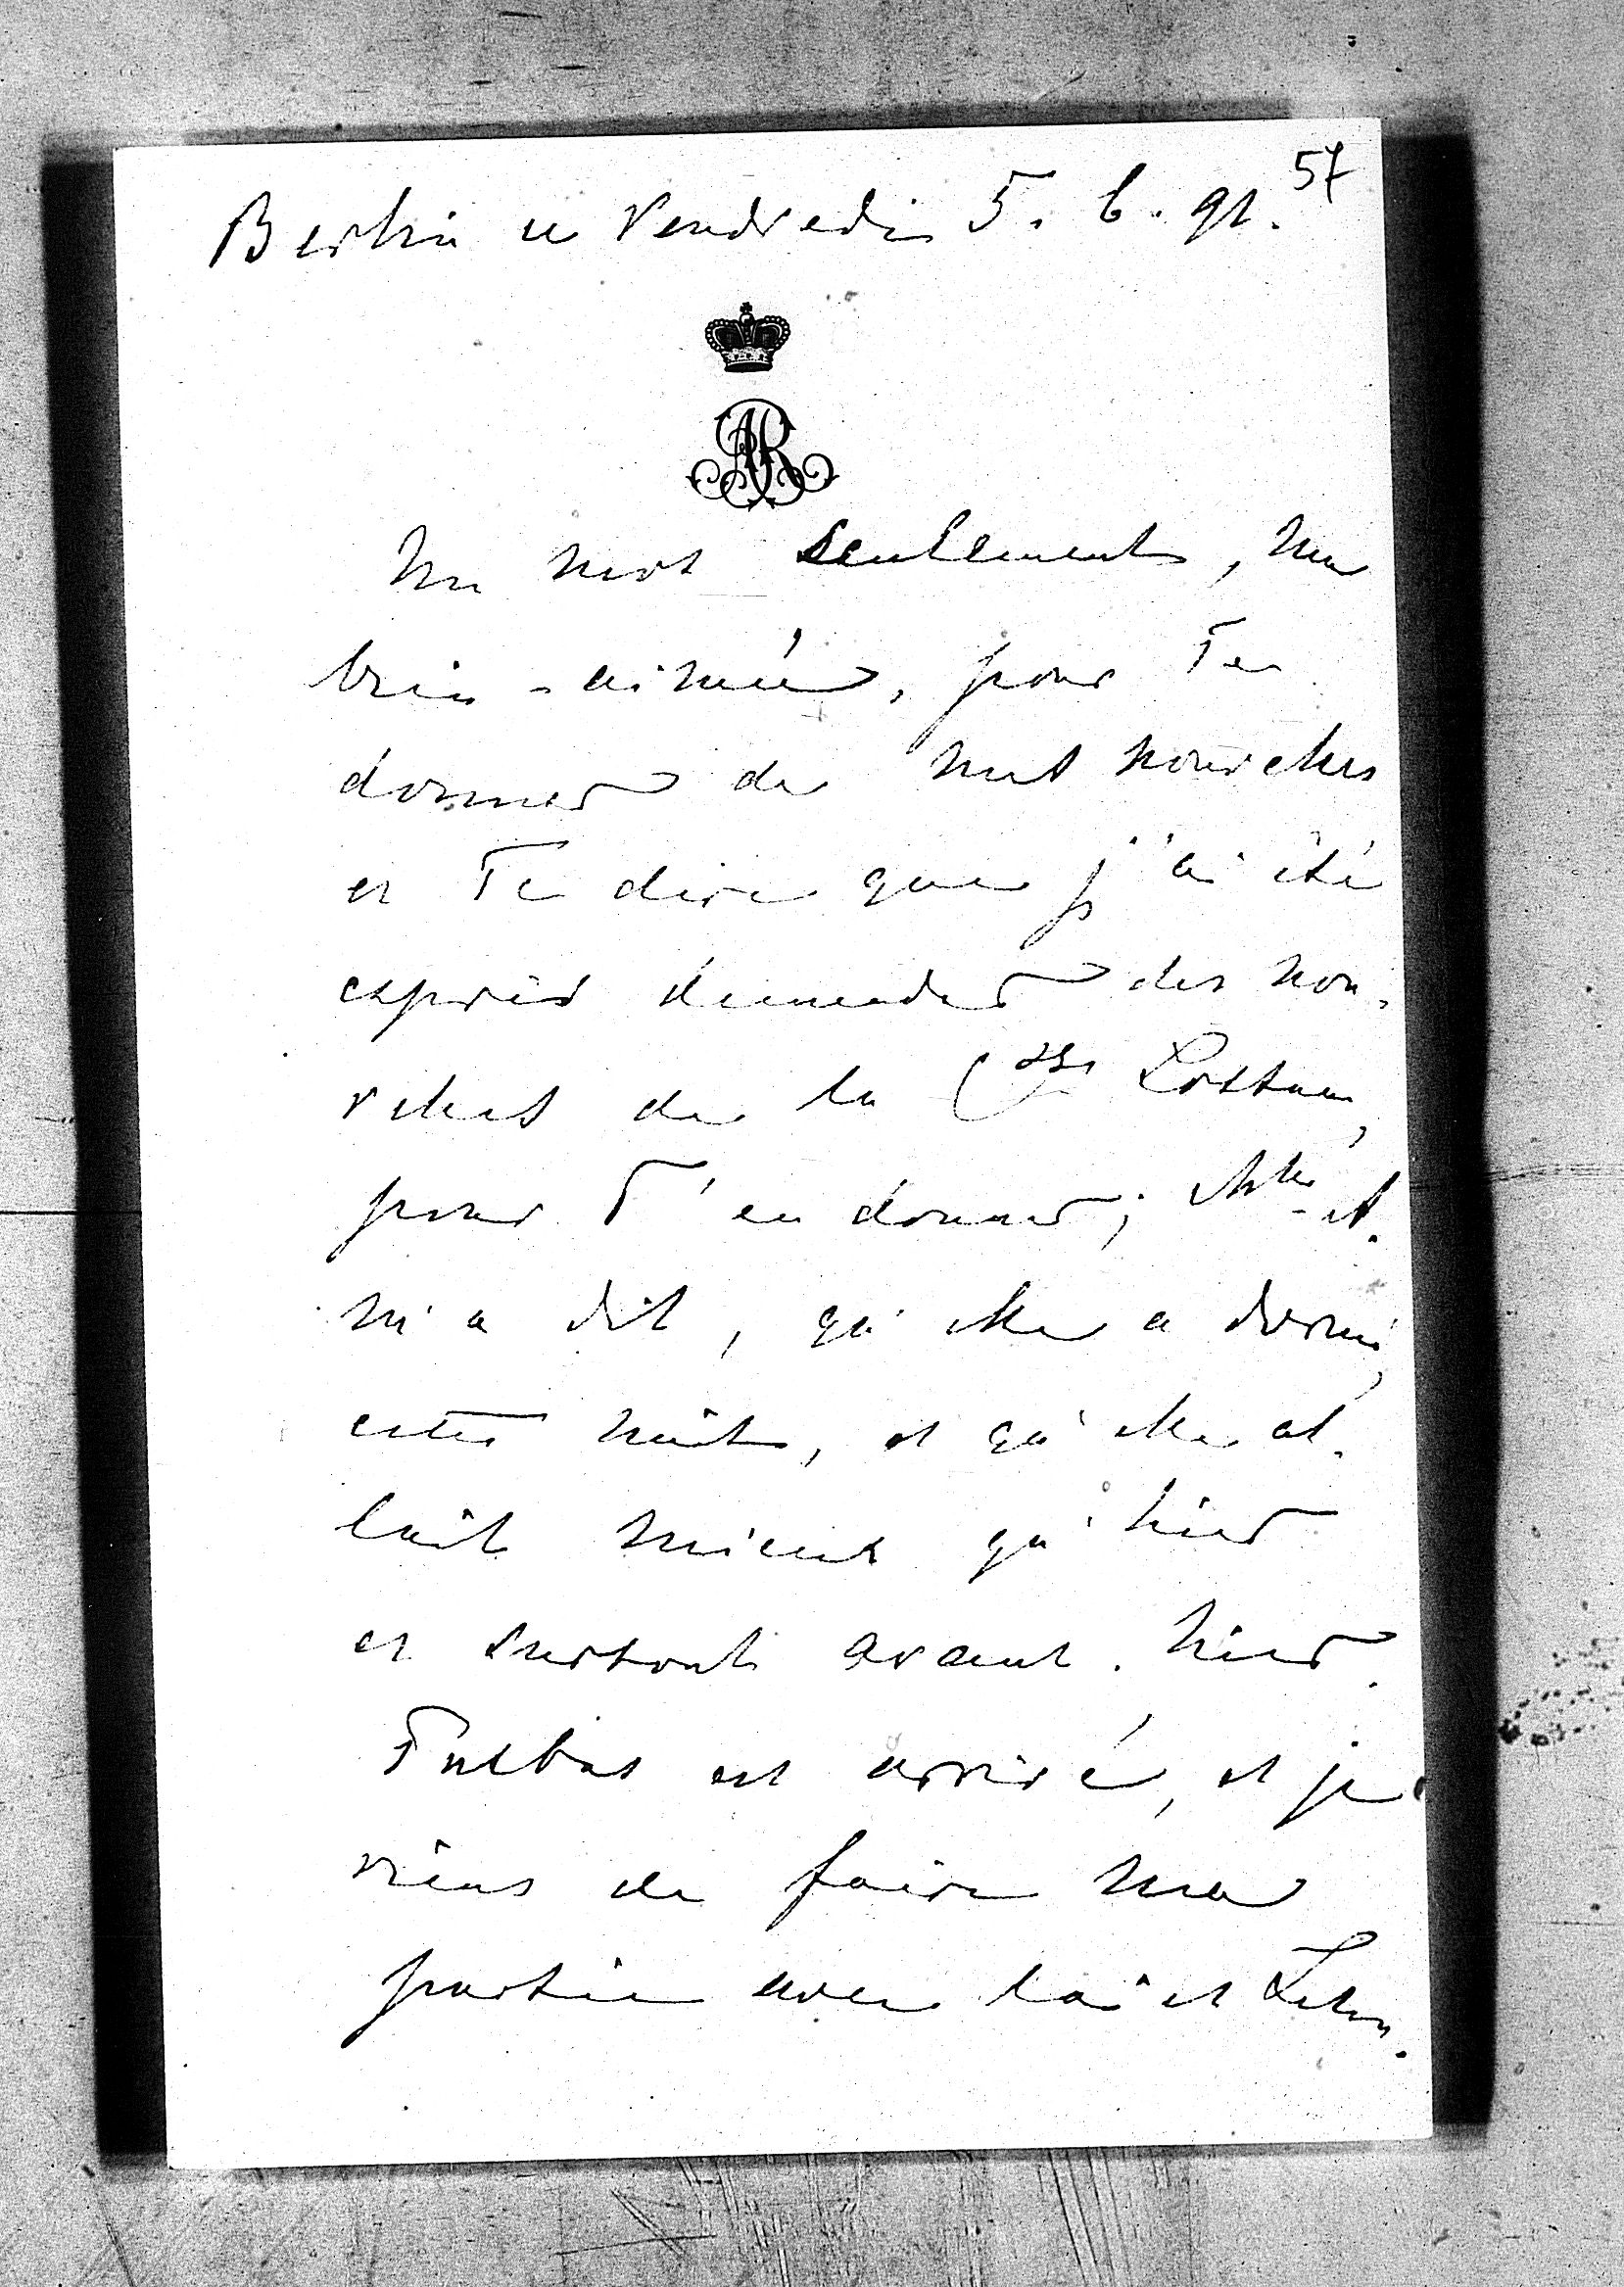 57
Berlin ce Vendredi 5. 6. 91.
AR
Un mot seulement, ma
bien-aimée, pour Te
donner de mes nouvelles
et Te dire que j'ai été
exprès demander des nou-
velles de la Csse
pour T'en donner; elle
m'a dit, qu'elle a dormi
cette nuit, et qu'elle al-
lait mieux qu'hier
et surtout avant-hier.
est arrivé, et je
viens de faire ma
partie avec lui et